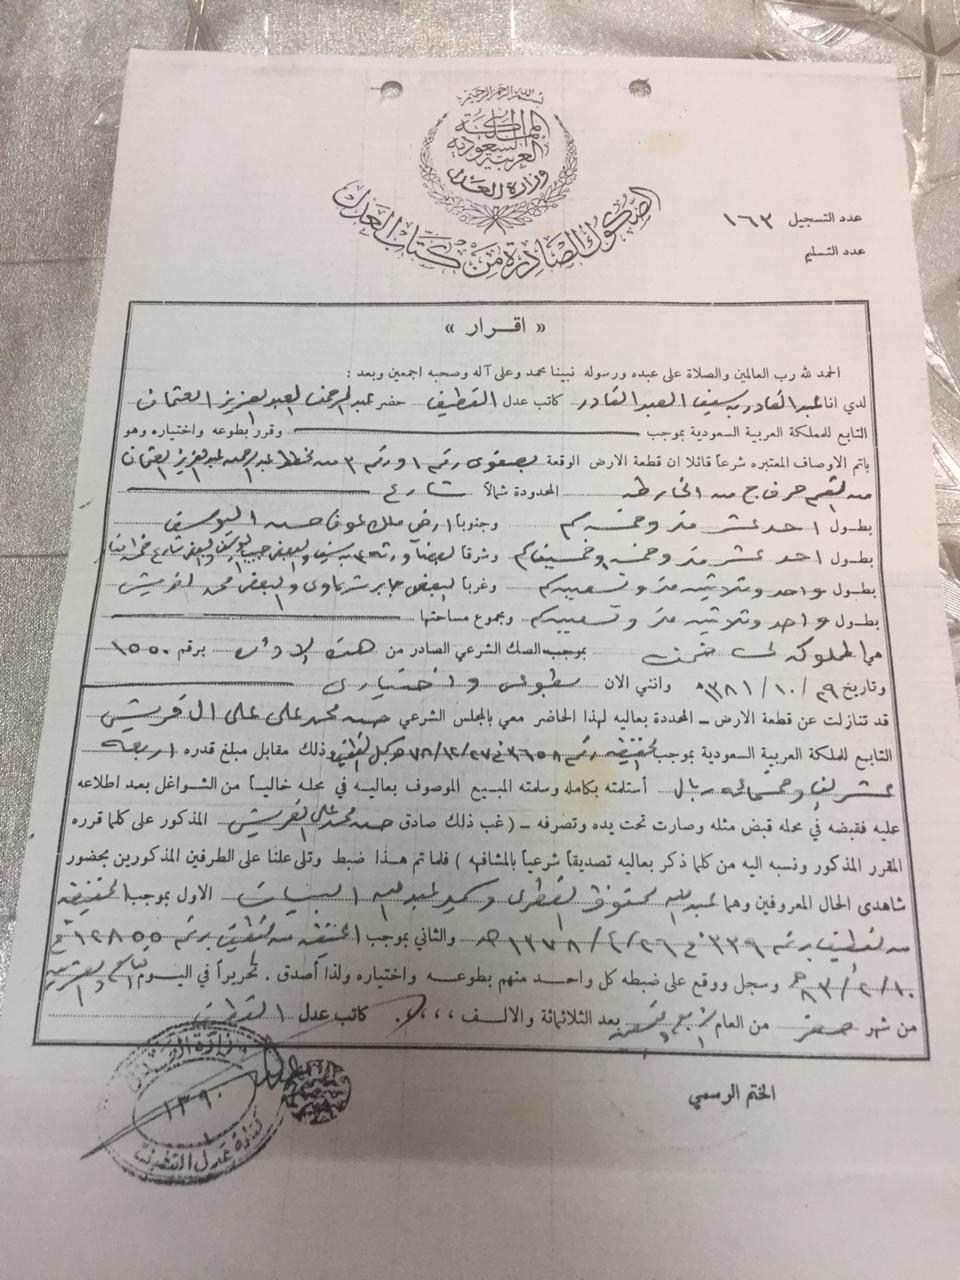 بسم الله الرحمن الرحيم
المملكة العربية السعودية
وزارة العدل
الصكوك الصادرة من كتاب العدل
عدد التسجيل ١٦٢
عدد التسليم
« اقرار »
الحمد لله رب العالمين والصلاة على عبده ورسوله نبينا محمد وعلى آله وصحبه اجمعين وبعد :
لدي انا عبد القادر بن سيف العبد القادر كاتب عدل القطيف حضر عبد الرحمن العبد العزيز العثمان
التابع للمملكة العربية السعودية بموجب وقرر بطوعه واختياره وهو
باتم الاوصاف المعتبره شرعاً قائلا ان قطعة الارض الوقعة بصفوى رقم ١ ورقم ٣ من مخطط عبد الرحمن عبد العزيز العثمان
من القسم حرف ج من الخارطة المحدودة شمالاً شارع
بطول احد عشر متر وخمسة سم وجنوباً ارض ملك حسن اليوسف
بطول احد عشر متر وخمسة وخمسين سم وشرقاً البعض والبعض والبعض شارع
بطول واحد وثلاثين متر وتسعين سم وغرباً البعض جابر والبعض محمد
بطول واحد وثلاثين متر وتسعين سم وبمجموع مساحتها
هي المملوكة لي بموجب الصك الشرعي الصادر من هذه الادارة برقم ١٥٥٠
وتاريخ ٢٩ / ١٠ / ١٣٨١ وانني الان بطوعي واختياري
قد تنازلت عن قطعة الارض ــ المحددة بعاليه لهذا الحاضر معي بالمجلس الشرعي حسن محمد علي علي ال قريش
التابع للمملكة العربية السعودية بموجب حفيظته رقم ٣٦٥٨ في ٢٧/١٢/٧٨ سجل القطيف وذلك مقابل مبلغ قدره اربعة
عشر الف وخمسمائة ريال أستلمته بكامله وسلمته المبيع الموصوف بعاليه في محله خالياً من الشواغل بعد اطلاعه
عليه فقبضه في محله قبض مثله وصارت تحت يده وتصرفه ــ ( غب ذلك صادق حسن محمد علي القريش المذكور على كلما قرره
المقرر المذكور ونسبه اليه من كلما ذكر بعاليه تصديقاً شرعياً بالمشافهه ) فلما تم هذا ضبط وتلى علنا على الطرفين المذكورين بحضور
شاهدي الحال المعروفين وهما عبد الله محفوظ القطري وسعيد عبد الله البيات الاول بموجب الحفيظة
من القطيف برقم ٣٣٩ في ٢٦ / ٤ / ١٣٧٨ هـ والثاني بموجب الحفيظة من القطيف برقم ١٢٨٥٥ في
١٠ / ٢ / ٨٣ هـ وسجل ووقع على ضبطه كل واحد منهم بطوعه واختياره ولذا أصدق . تحريراً في اليوم
من شهر صفر من العام بعد الثلاثمائة والالف ،،،، كاتب عدل القطيف
الختم الرسمي
١٣٩٠
كتابة عدل القطيف